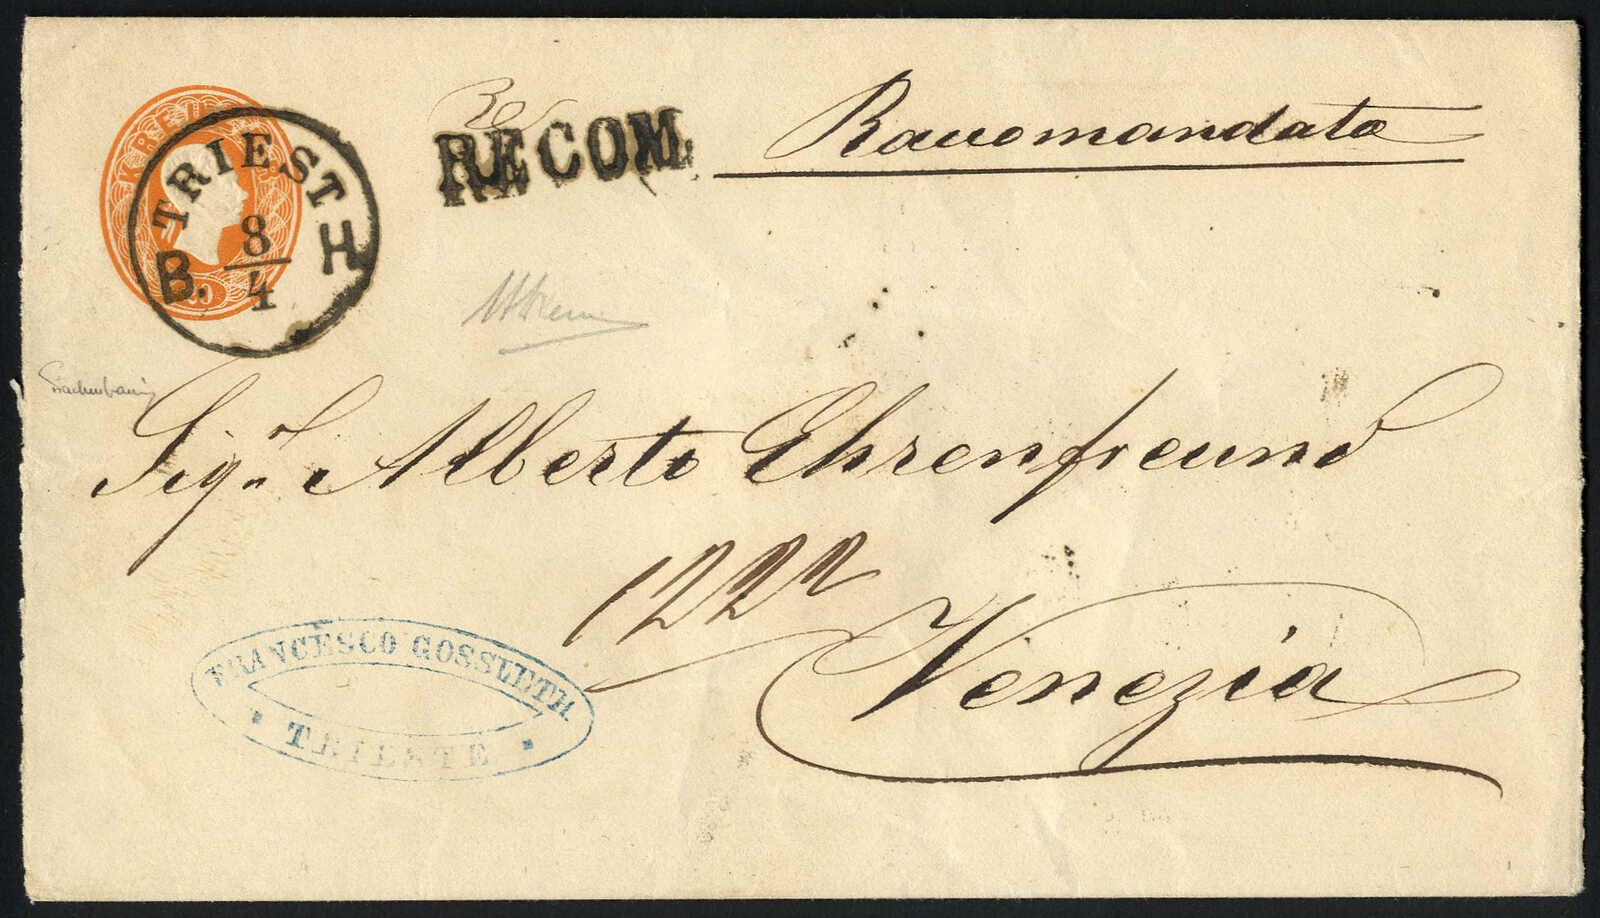 KREU
TRIEST
B. 8/4 H
RECOM.
Raccomandata
Sigr. Alberto Ehrenfreund
1222
Venezia
FRANCESCO GOSSLETH
* TRIESTE *